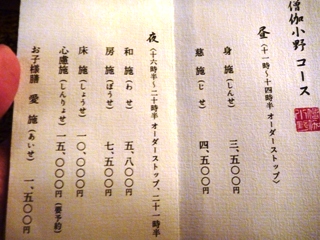 僧伽小野 コース
昼 (十一時〜十四時半 オーダーストップ)
身 施 (しんせ) 三、五〇〇円
慈 施 (じ せ) 四、五〇〇円
夜 (十六時半〜二十時半 オーダーストップ、二十一時半
和 施 (わ せ) 五、八〇〇円
房 施 (ぼうせ) 七、五〇〇円
床 施 (しょうせ) 一〇、〇〇〇円
心慮 施 (しんりょせ) 一五、〇〇〇円 (要予約)
お子様膳 愛 施 (あいせ) 一、五〇〇円